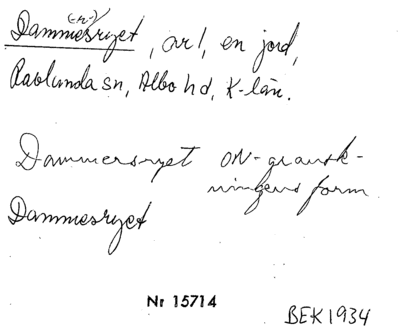 Dammesryet, avl, en jord,
(-r-)
Ravlunda sn, Albo hd, K-län.
Dammersryet ON-gransk-
ningens form
Dammesryet
Nr 15714
BEK 1934